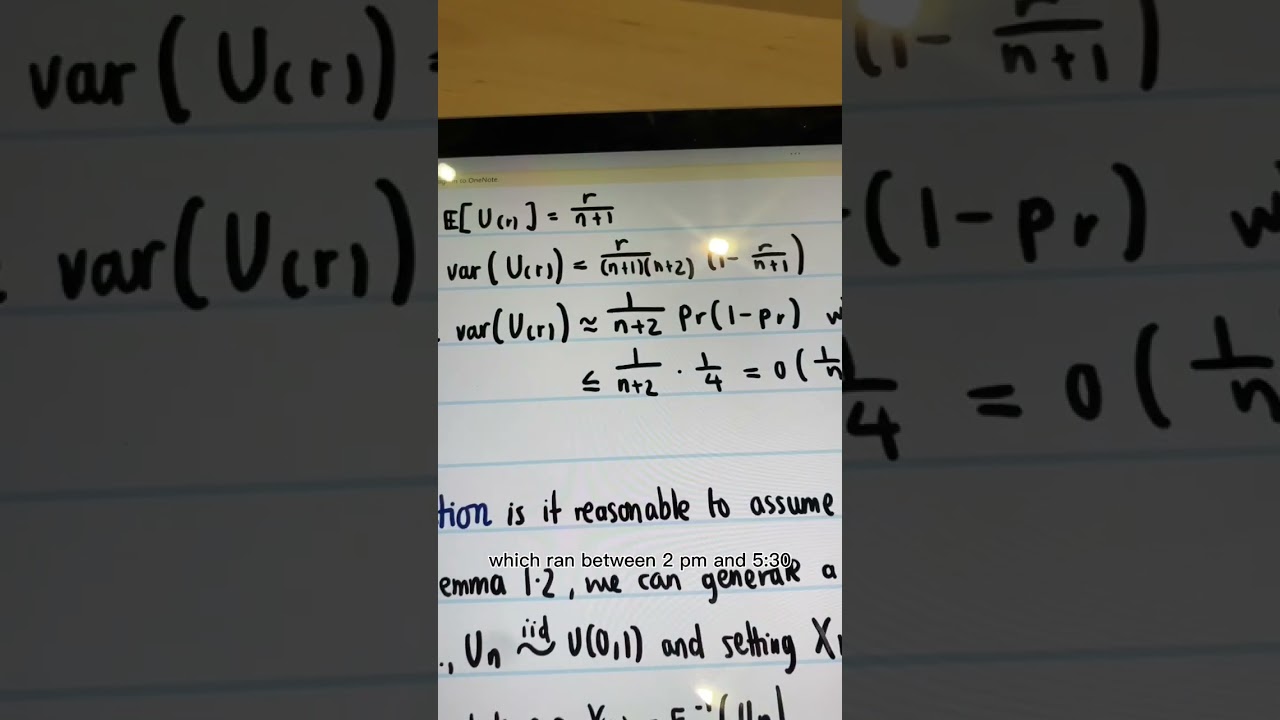 to OneNote
E[U(r)] = r/n+1
var(U(r)) = r/(n+1)(n+2) (1 - r/n+1)
var(U(r)) ≈ 1/n+2 pr(1-pr) w
≤ 1/n+2 · 1/4 = O(1/n
tion is it reasonable to assume
which ran between 2 pm and 5:30
emma 1.2, we can generate a
., Un iid~ U(0,1) and setting X
F⁻¹(Un)
var(U(r)) =
(1 - r/n+1)
var(U(r))
(1-pr) w
4 = O(1/n